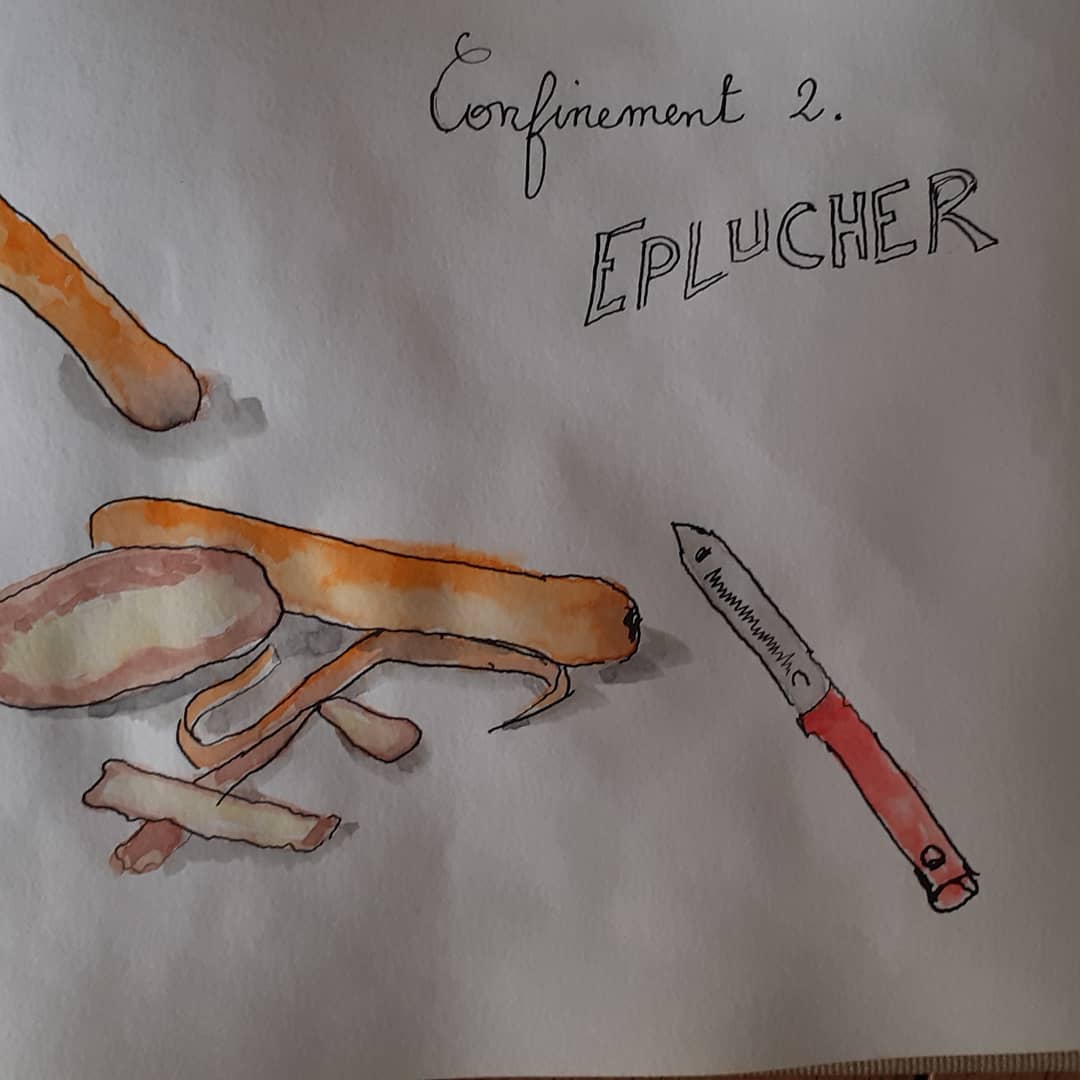 Confinement 2.
EPLUCHER